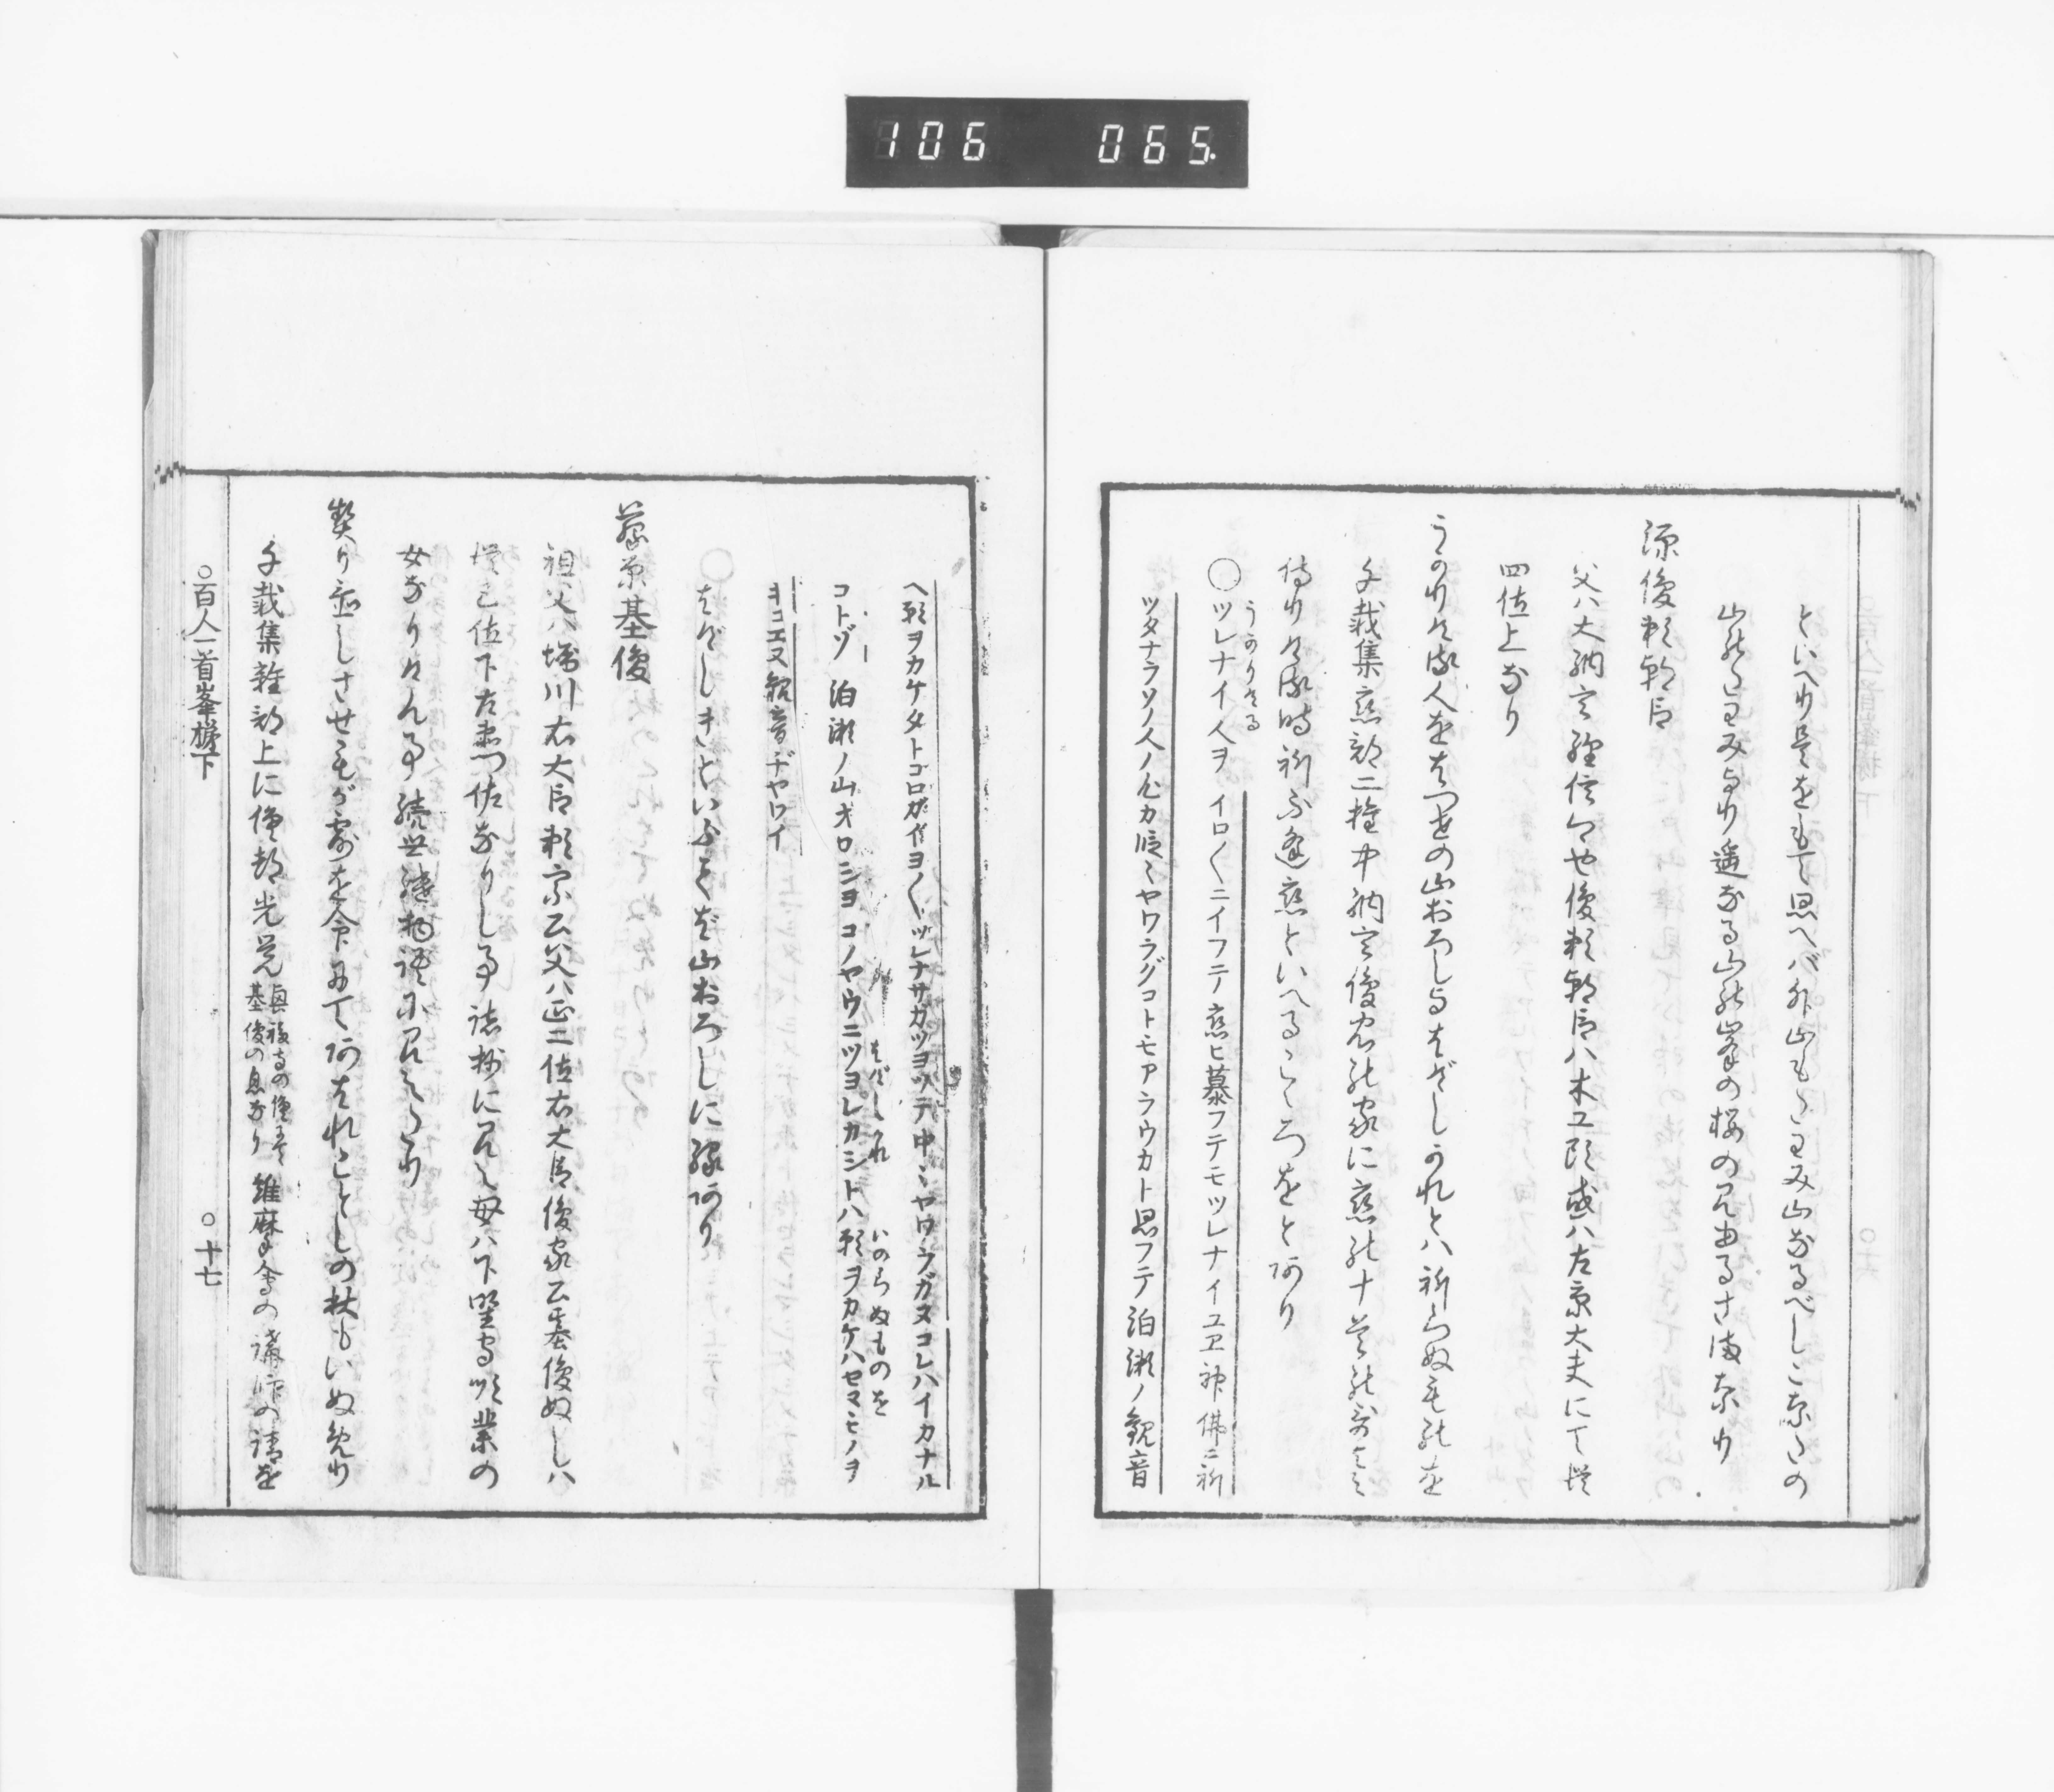 106 065.
といへり是をもて思へバ外山もこゝのみ山なるべしこなたの
山のとのみあり遥なる山の峯の桜の見ゆるさま也けり
源俊頼朝臣
父ハ大納言経信卿也俊頼朝臣ハ木工頭或ハ左京大夫にて従
四位上なり
うかりける人をはつせの山おろしよはげしかれとハ祈らぬものを
千載集恋部二権中納言俊忠の家に恋の十首の哥よミ
侍りける時祈不逢恋といへるこゝろをとあり
○ツレナイ人ヲイロ〳〵ニイフテ恋ヒ慕フテモツレナイユヱ神佛ニ祈
うかりける
ツタナラソノ人ノ心カ広ミヤワラグコトモアラウカト思フテ泊瀬ノ観音
ヘ願ヲカケタトコロガイヨ〳〵ツレナサガツヨツテ中ミヤワラガヌコレハイカナル
コトゾ泊瀬ノ山オロシヨコノヤウニツヨレカシトハ願ヲカケハセヌモノヲ
はげしかれ
いのらぬものを
キコエヌ観音ヂヤワイ
はげしきといふことば山おろしに縁あり
藤原基俊
祖父ハ堀川右大臣頼宗公父ハ正二位右大臣俊家公基俊ぬしハ
従五位下左衛門佐なりし事諸抄に見え母ハ下野守順業の
女なりけん事続世継物語に見えたり
契り置しさせもが露を命にてあはれことしの秋もいぬめり
千載集雑部上に僧都光覚
興福寺の僧
基俊の息なり
維麻會の講師の請を
○百人一首峯梯下
○十七